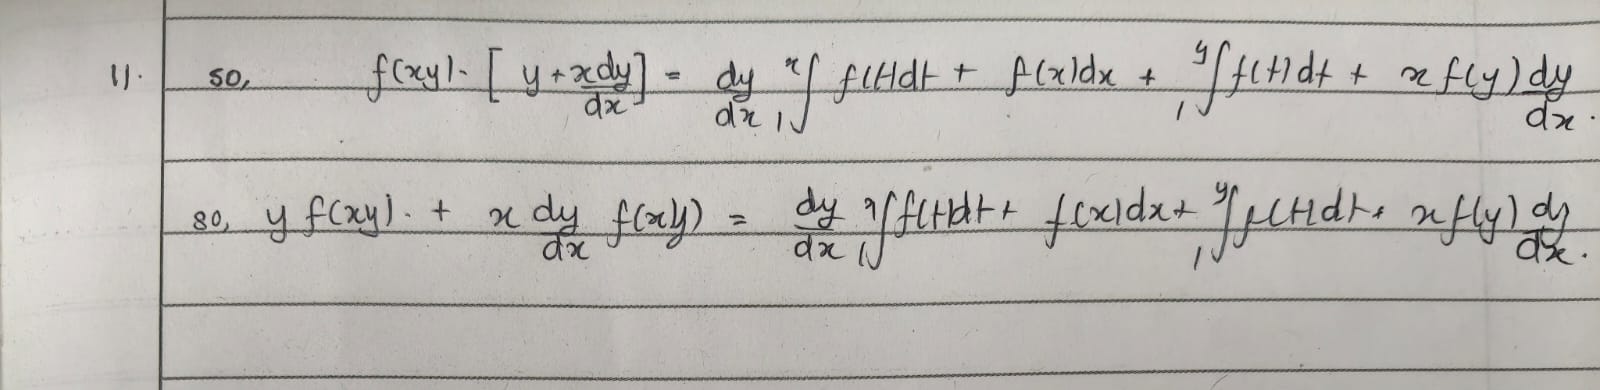 11. so, f(xy). [ y + x dy/dx ] = dy/dx ₁ˣ∫ f(t)dt + f(x)dx + ₁ʸ∫ f(t)dt + x f(y) dy/dx.
so, y f(xy). + x dy/dx f(xy) = dy/dx ₁ˣ∫ f(t)dt + f(x)dx + ₁ʸ∫ f(t)dt + x f(y) dy/dx.